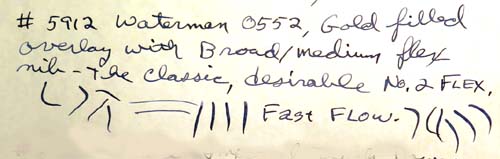 # 5912 Waterman 0552, Gold filled
overlay with Broad/medium flex
nib - The classic, desirable No. 2 FLEX.
Fast Flow.